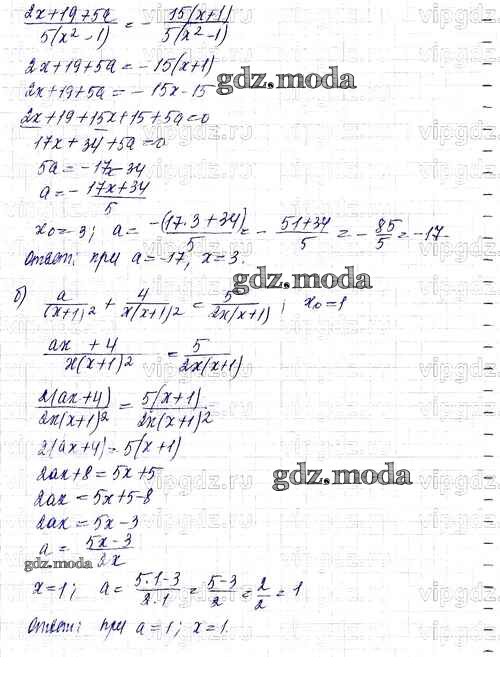 (2x+19+5a)/(5(x²-1)) = - (15(x+1))/(5(x²-1))
2x+19+5a = -15(x+1)
gdz.moda
2x+19+5a = -15x-15
2x+19+15x+15+5a=0
17x+34+5a=0
5a=-17x-34
a=- (17x+34)/5
x₀=3; a= (-(17·3+34))/5 = - (51+34)/5 = - 85/5 = -17.
Ответ: при a=-17, x=3.
gdz.moda
б) a/(x+1)² + 4/(x(x+1)²) = 5/(2x(x+1)); x₀=1
(ax+4)/(x(x+1)²) = 5/(2x(x+1))
(2(ax+4))/(2x(x+1)²) = (5(x+1))/(2x(x+1)²)
2(ax+4)=5(x+1)
2ax+8=5x+5
gdz.moda
2ax=5x+5-8
2ax=5x-3
a= (5x-3)/(2x)
gdz.moda
x=1; a= (5·1-3)/(2·1) = (5-3)/2 = 2/2 = 1
Ответ: при a=1; x=1.